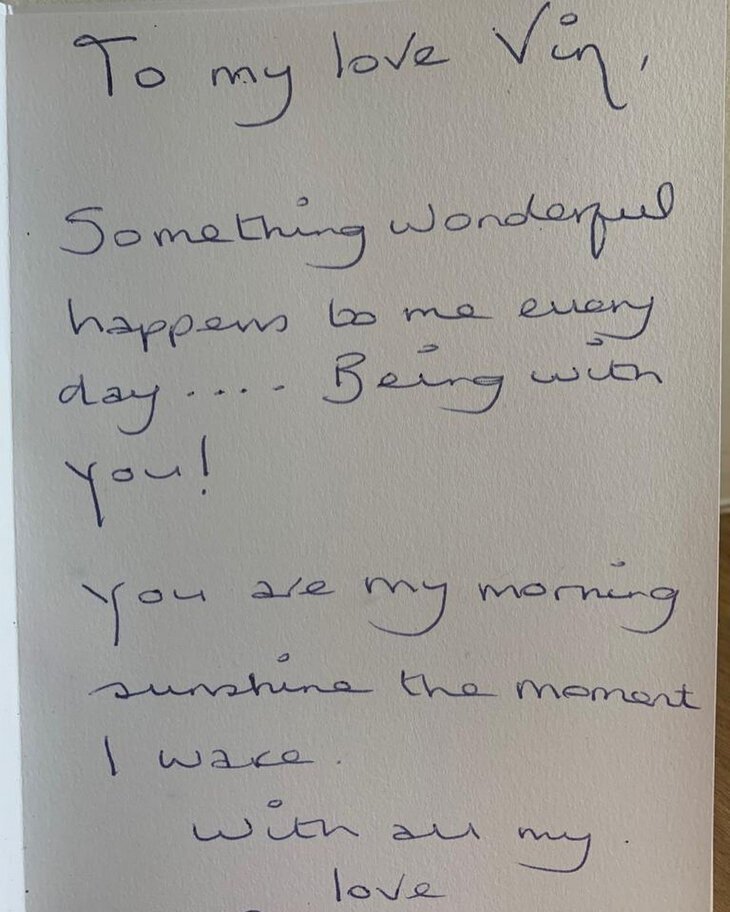 To my love Vin,
Something wonderful
happens to me every
day.... Being with
you!
You are my morning
sunshine the moment
I wake.
With all my
love